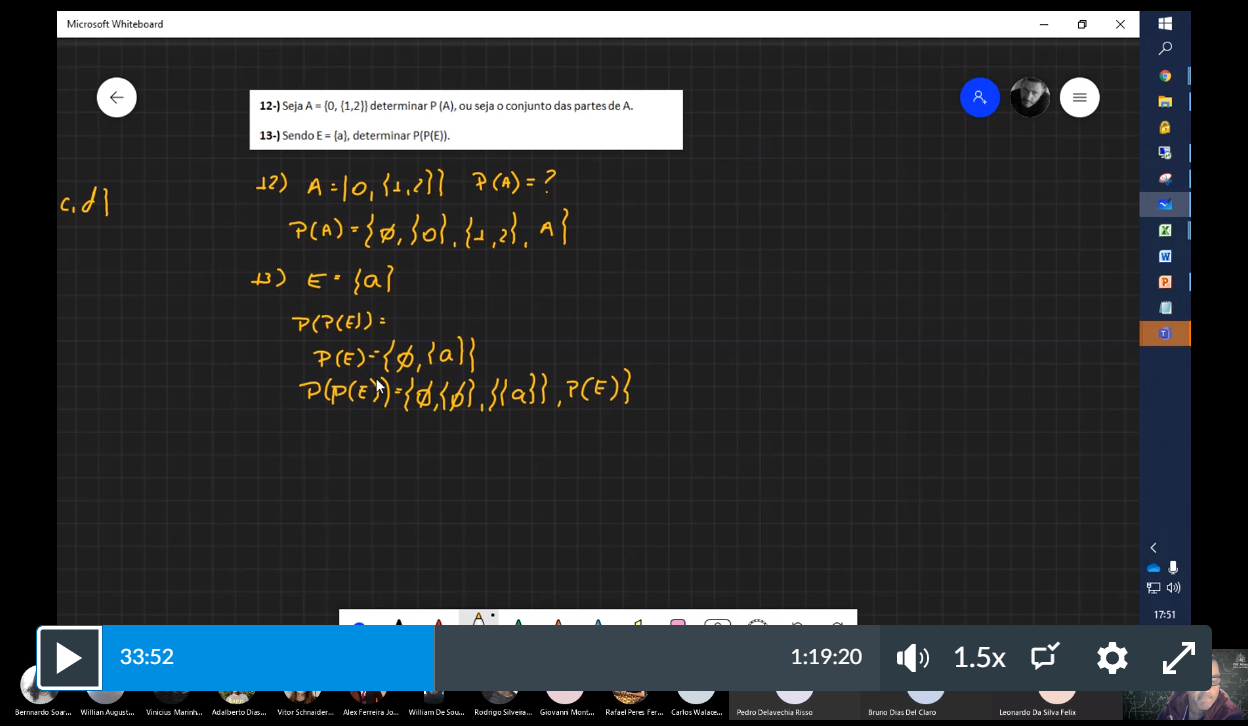 Microsoft Whiteboard
12-) Seja A = {0, {1,2}} determinar P (A), ou seja o conjunto das partes de A.
13-) Sendo E = {a}, determinar P(P(E)).
c, d}
12) A = {0, {1,2}} P(A) = ?
P(A) = {∅, {0}, {1,2}, A}
13) E = {a}
P(P(E)) =
P(E) = {∅, {a}}
P(P(E)) = {∅, {∅}, {{a}}, P(E)}
17:51
33:52
1:19:20
1.5x
Bernnardo Soar...
Willian August...
Vinicius Marinh...
Adalberto Dias...
Vitor Schneider...
Alex Ferreira Jo...
William De Sou...
Rodrigo Silveira...
Giovann Mont...
Rafael Peres Fer...
Carlos Walace...
Pedro Delavechia Risso
Bruno Dias Del Claro
Leonardo Da Silva Felix